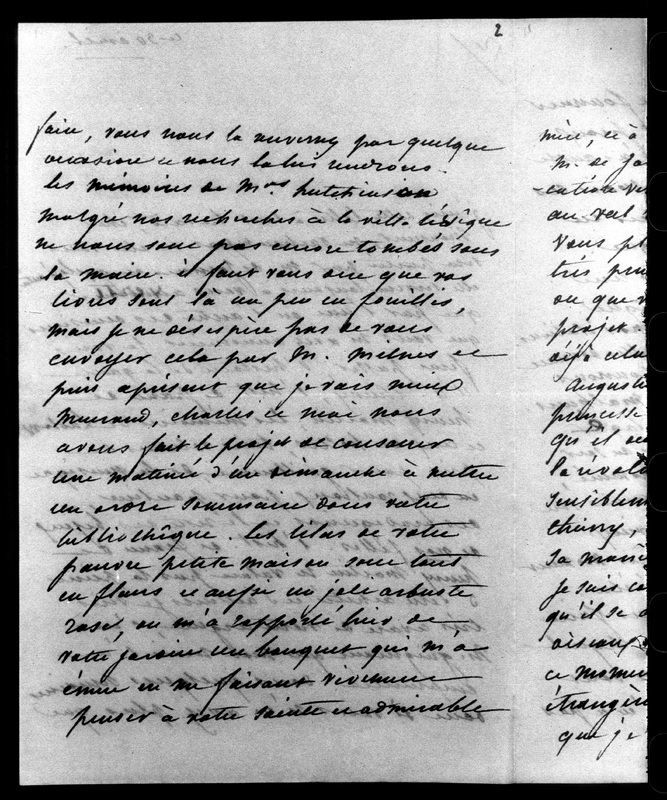 2
faire, vous nous la enverrez par quelque
occasion et nous la lui rendrons.
les mémoires de Mrs hutchinson
malgré nos recherches à la villa
ne nous sont pas encore tombés sous
la main. il faut vous dire que vos
livres sont là un peu en fouillis,
mais je ne désespère pas de vous
envoyer cela par M. Milnes et
puis aprésent que je vais mieux
Meurand, charles et moi nous
avons fait le projet de consacrer
une matinée d'un dimanche à mettre
un ordre sommaire dans votre
bibliothèque. les lilas de votre
pauvre petite maison sont tout
en fleurs et aussi un joli arbuste
rose, on m'a rapporté hier de
votre jardin un bouquet qui m'a
émue en me faisant vivement
penser à votre sainte et admirable
mée, et à
M. de
au val
Vous
très
ou que
projet.
déjà
Augusti
princesse
qu'il
la révol
sensiblem
chery,
Sa
je suis
qu'il se
oiseaux
ce mome
étrangèr
que je